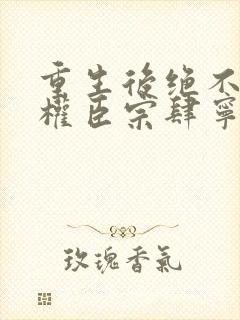 重生後绝不
權臣宗肆寧
玫瑰香氣